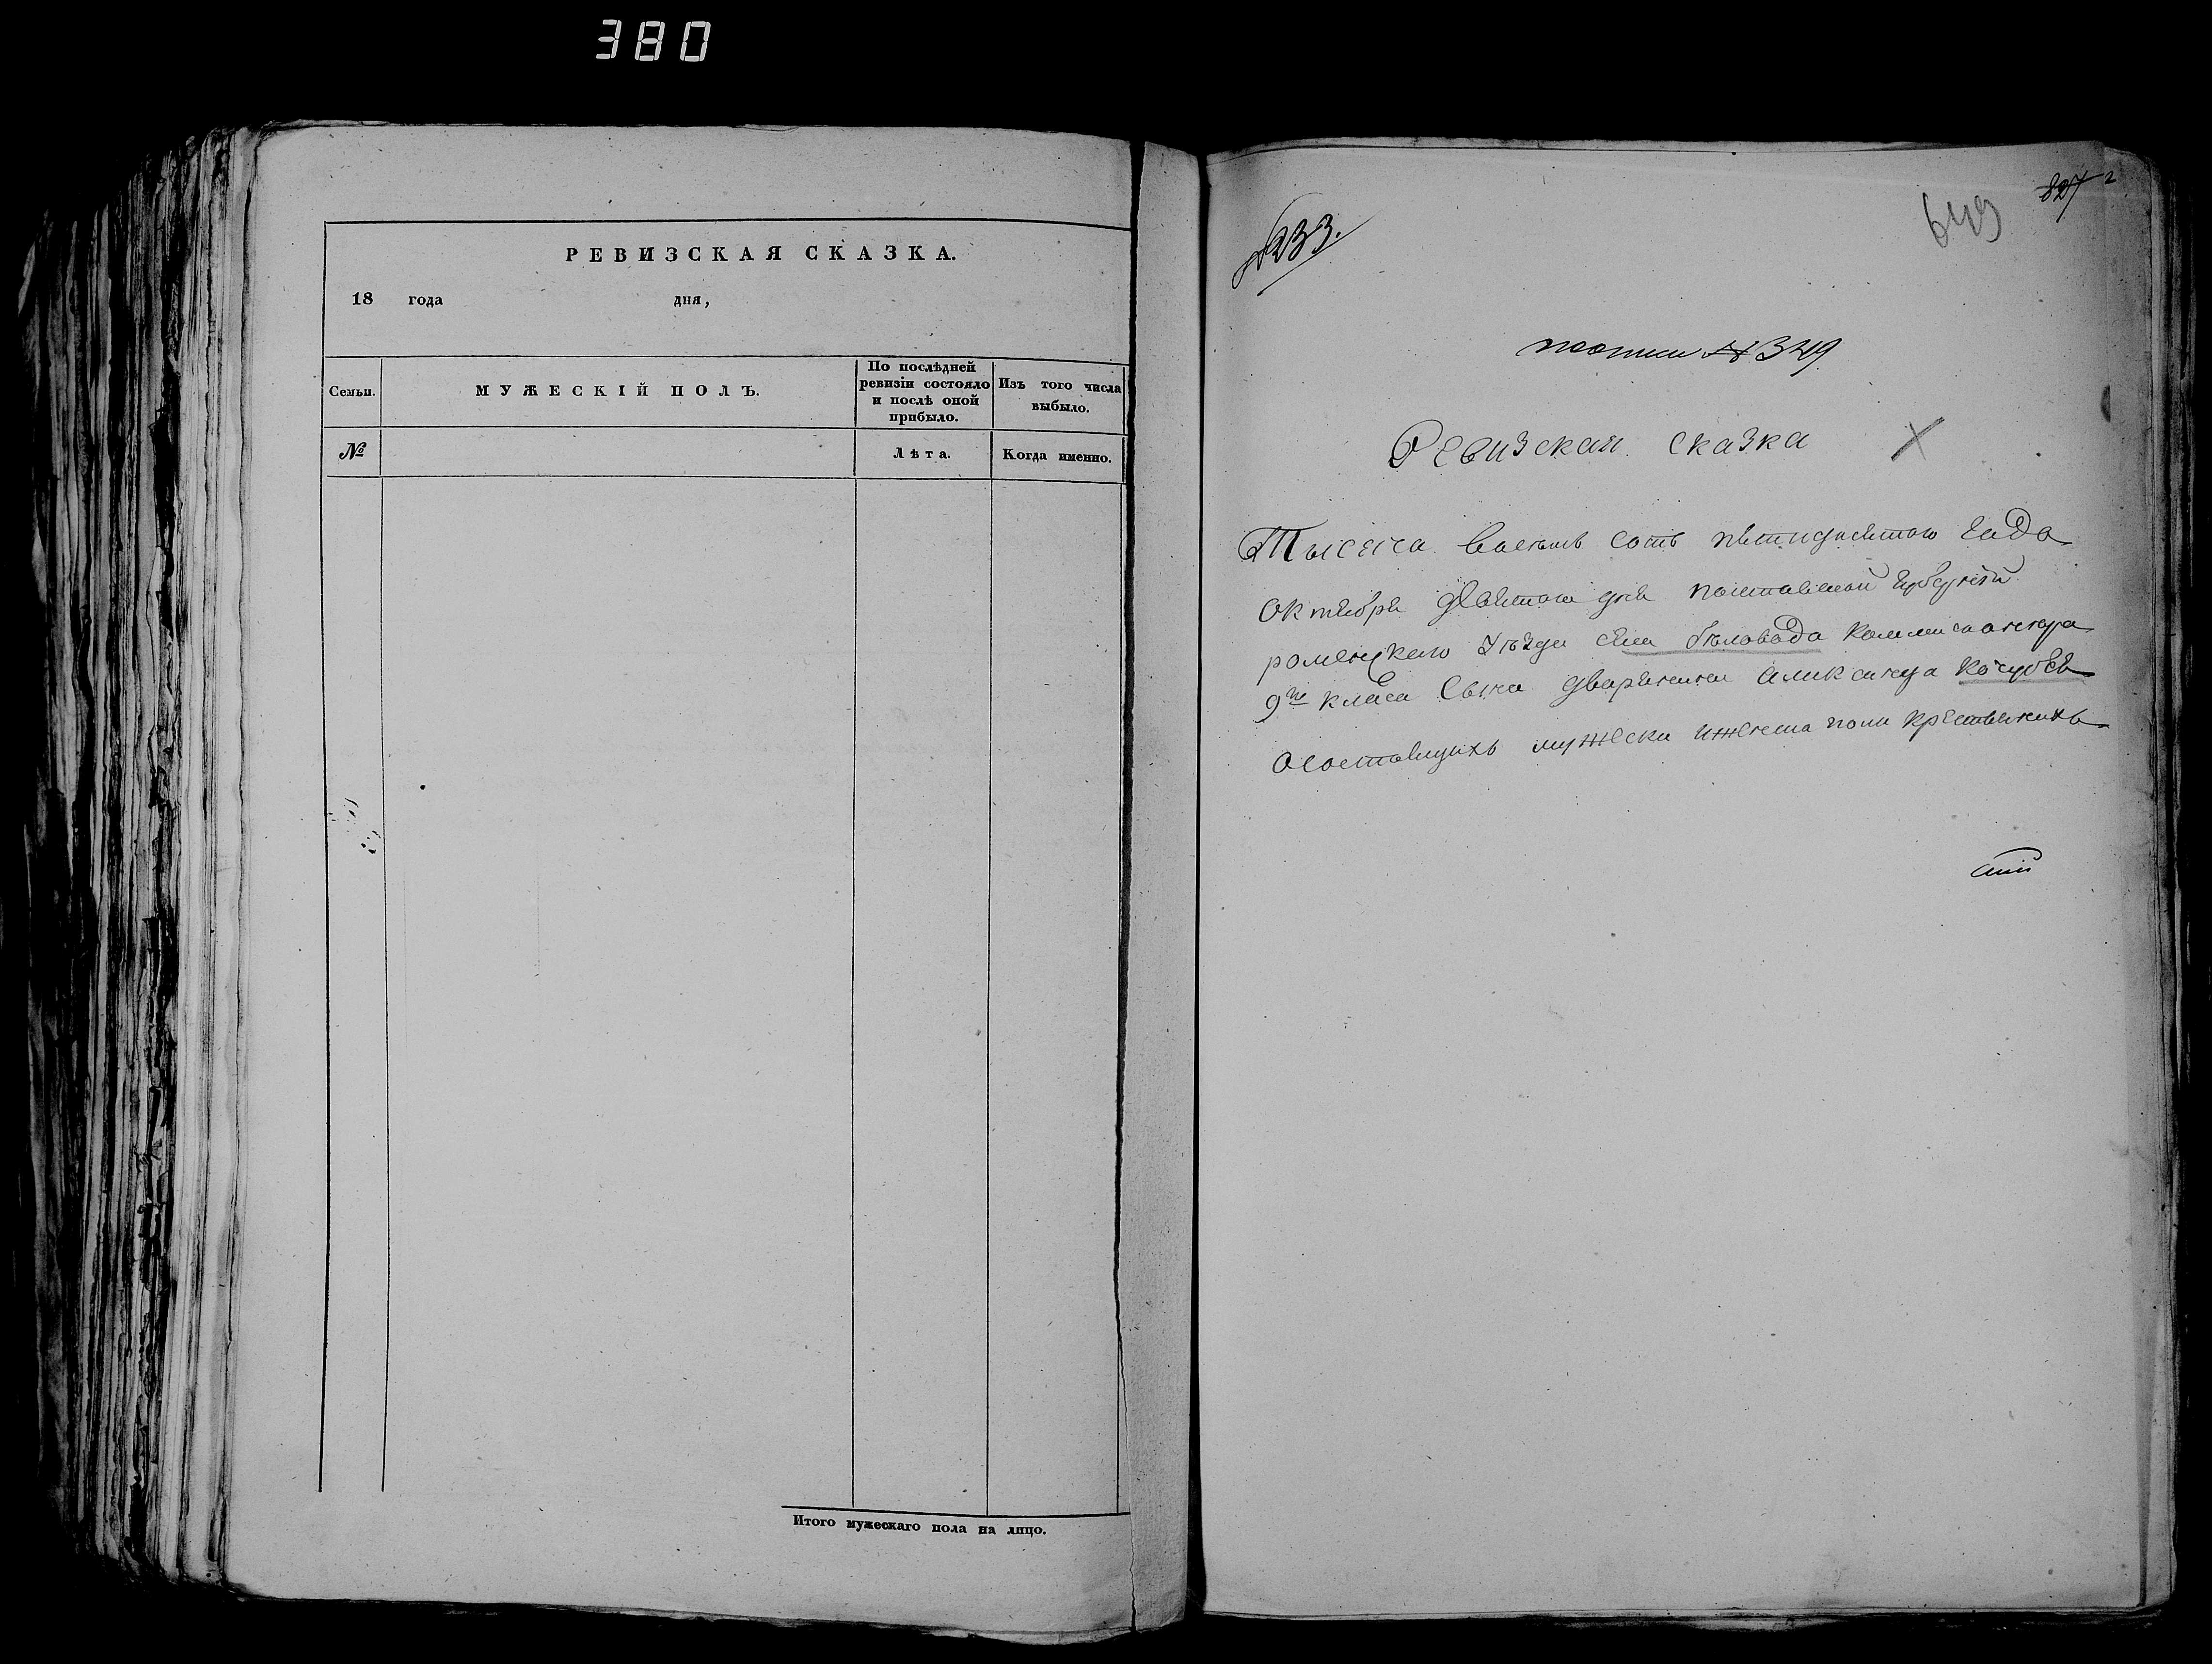 380
РЕВИЗСКАЯ СКАЗКА.
18 года дня,
Семьи.
МУЖЕСКІЙ ПОЛЪ.
По послѣдней ревизіи состояло и послѣ оной прибыло.
Изъ того числа выбыло.
№
Лѣта.
Когда именно.
Итого мужескаго пола на лицо.
827
643
№233.
№349
Ревизская сказка
Тысеча восемь сотъ петидесетаго года
Октебря деветаго дня полтавской губерніи
роменскаго уѣзда села бѣловода коммисионера
9го класа сына дваренина александра кочубея
осостаящихъ мужеска иженска пола крестьянахъ